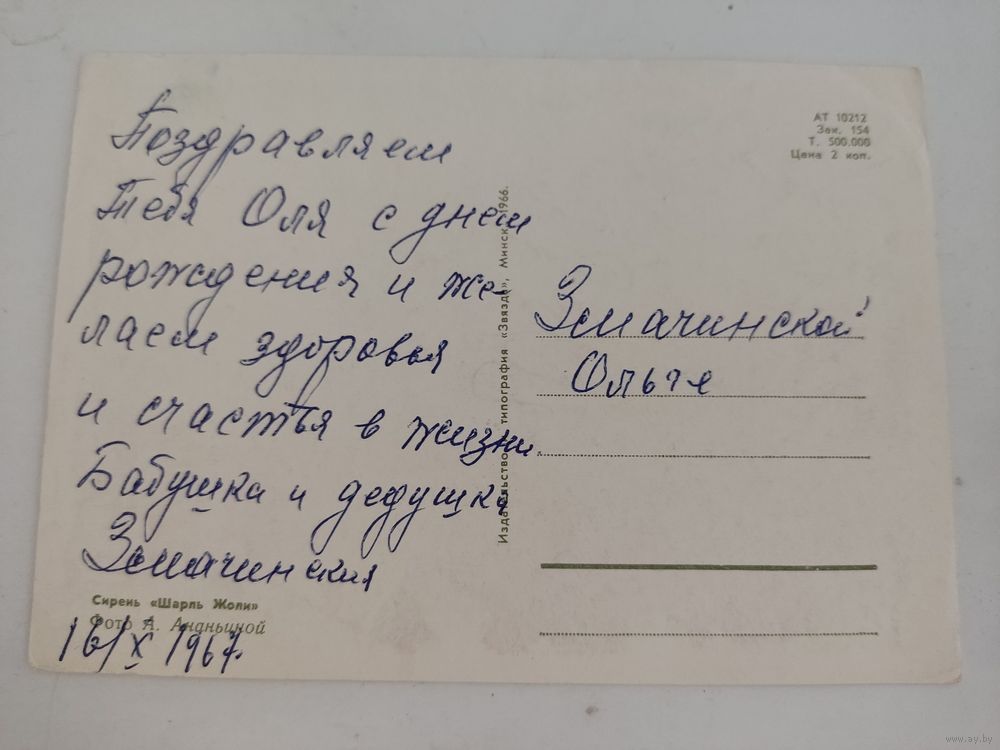 Поздравляем
Тебя Оля с днем
рождения и же-
лаем здоровья
и счастья в жизни.
Бабушка и дедушка
Змачинския
16/X 1967.
Сирень «Шарль Жоли»
Фото А. Ананьиной
Издательство и типография «Звязда», Минск, 1966.
АТ 10212
Зак. 154
Т. 500.000
Цена 2 коп.
Змачинской
Ольге
www.ay.by